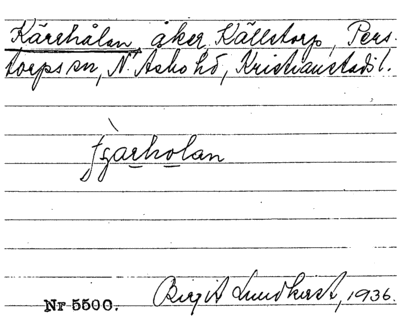 Kärrhålan, åker, Källstorp, Pers-
torps sn, N. Åsbo hd, Kristianstads l.
Nr 5500.
Birgit Lundkvist, 1936.